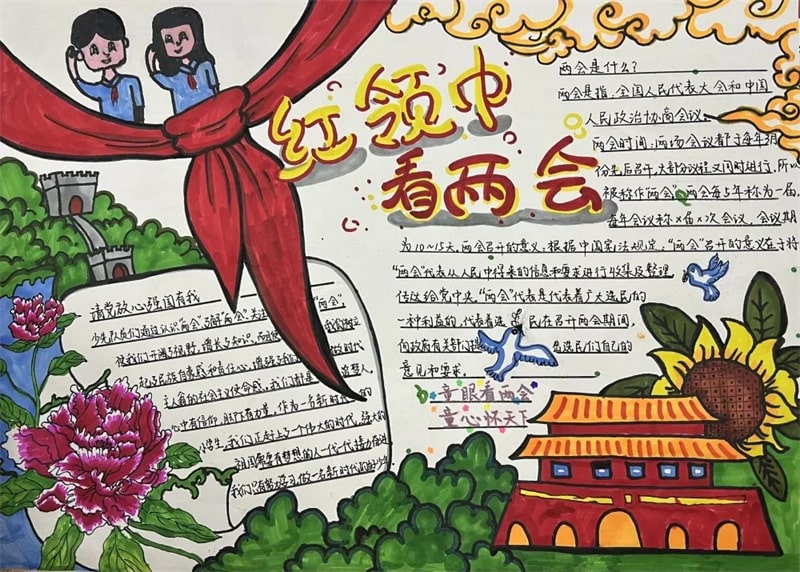 红领巾
看两会
两会是什么?
两会是指:全国人民代表大会和中国
人民政治协商会议。
两会时间:两场会议都于每年3月
份先后召开,大部分议程又同时进行,所以
被称作"两会",两会每5年称为一届,
每年会议称×届×次会议,会议期
为10~15天,两会召开的意义:根据中国宪法规定,"两会"召开的意义在于将
"两会"代表从人民中得来的信息和要求进行收集及整理,
传达给党中央,"两会"代表是代表着广大选民的
一种利益的,代表着选民在召开两会期间,
向政府有关部门提出选民们自己的
意见和要求。
童眼看两会
童心怀天下
请党放心强国有我
少年队员们通过认识"两会"了解"两会"关注"两会",
使我们开阔了视野,增长了知识,
民族自豪感和责任心,
主人翁的
心中有信仰,脚下有力量,作为一名新时代的
小学生,我们正赶上了一个伟大的时代,强大的
祖国需要有梦想的人一代一代接力奋进
我们只有努力学习,做一名新时代的好少年